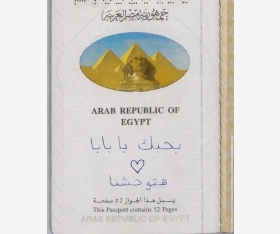 جمهورية مصر العربية
ARAB REPUBLIC OF
EGYPT
بحبك يا بابا
هتوحشنا
يشمل هذا الجواز ٥٢ صفحة
This Passport contains 52 Pages
ARAB REPUBLIC OF EGYPT